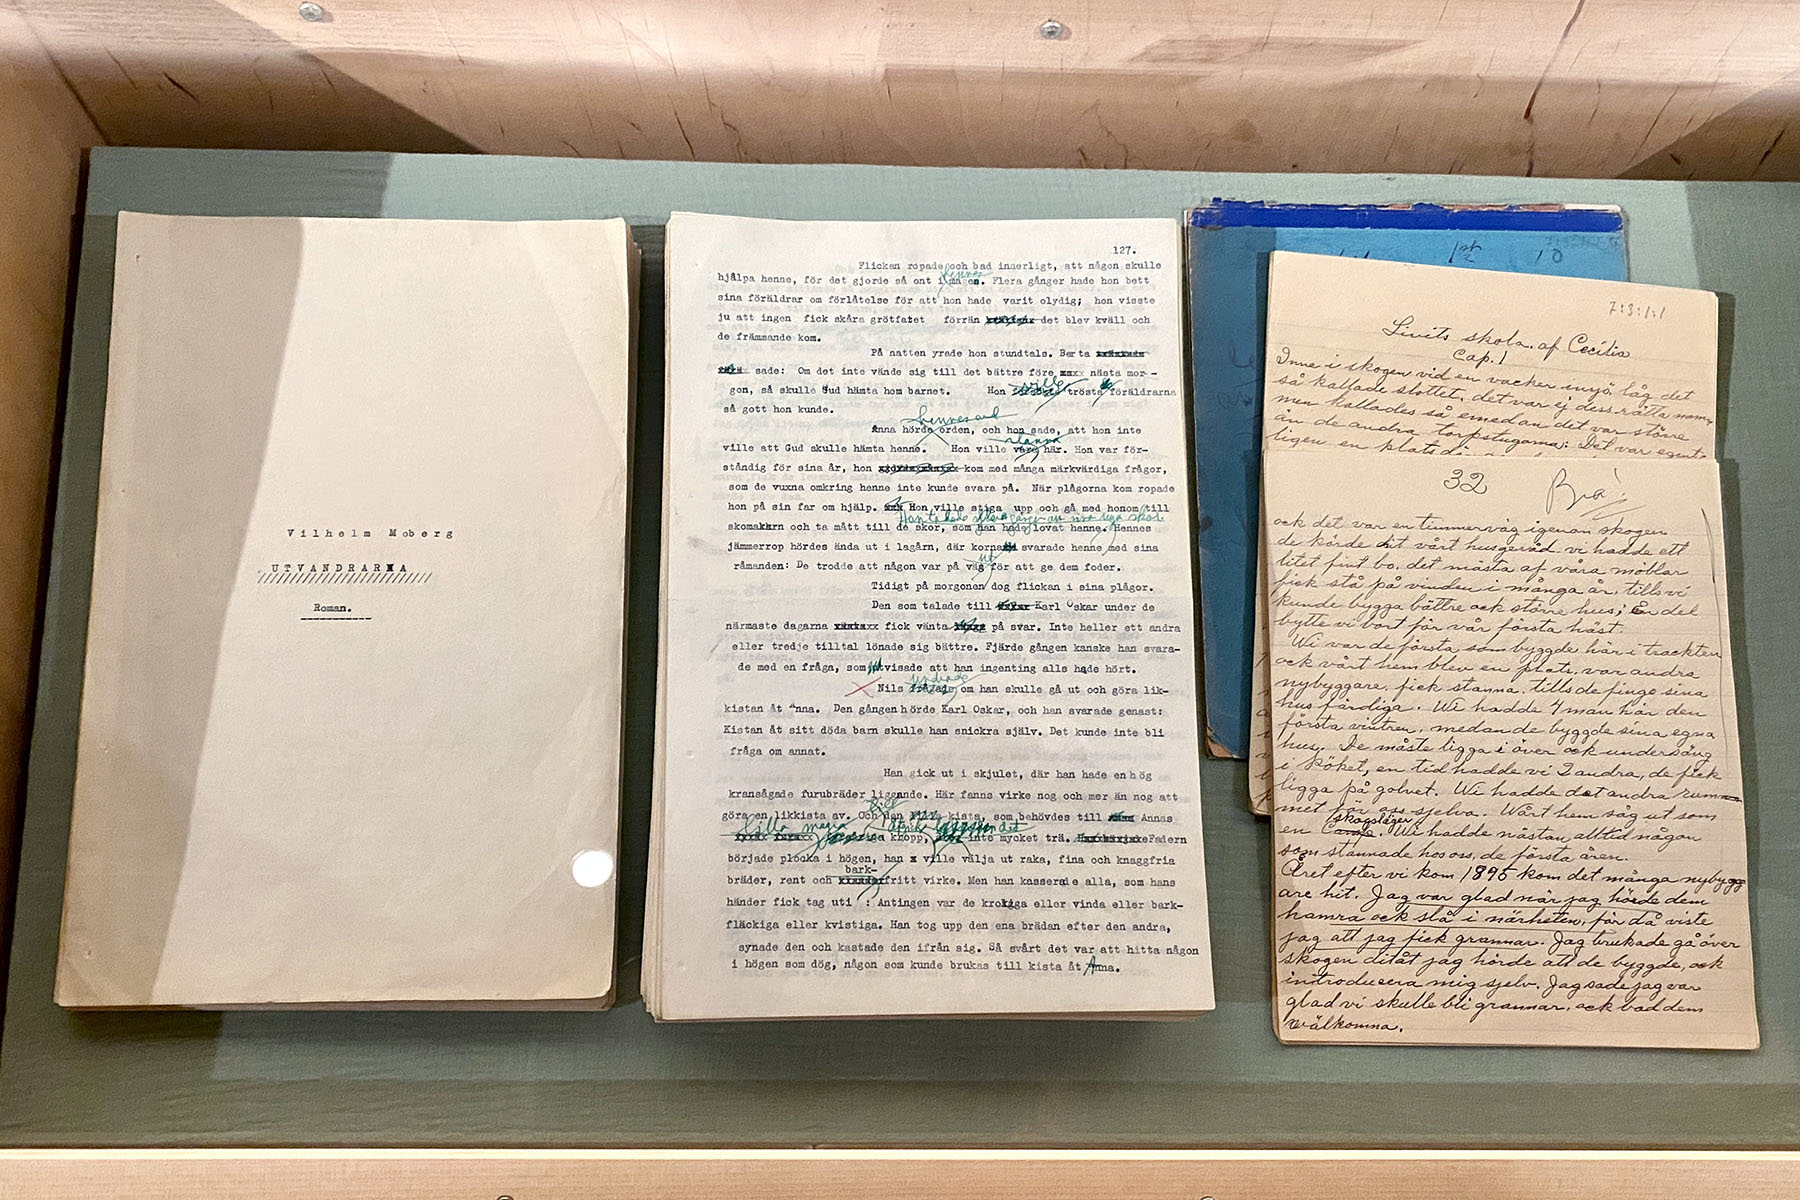 Vilhelm Moberg
UTVANDRARNA
Roman.
127.
Flickan ropade och bad innerligt, att någon skulle
hjälpa henne, för det gjorde så ont i hennes magen. Flera gånger hade hon bett
sina föräldrar om förlåtelse för att hon hade varit olydig; hon visste
ju att ingen fick skåra grötfatet förrän det blev kväll och
de främmande kom.
På natten yrade hon stundtals. Berta
sade: Om det inte vände sig till det bättre före nästa mor-
gon, så skulle Gud hämta hem barnet. Hon ville trösta föräldrarna
så gott hon kunde.
hennes ord
Anna hörde orden, och hon sade, att hon inte
stanna
ville att Gud skulle hämta henne. Hon ville vara här. Hon var för-
ståndig för sina år, hon kom med många märkvärdiga frågor,
som de vuxna omkring henne inte kunde svara på. När plågorna kom ropade
hon på sin far om hjälp. Hon ville stiga upp och gå med honom till
skomakarn och ta mått till de skor, som han hade lovat henne. Hennes
jämmerrop hördes ända ut i lagårn, där korna svarade henne med sina
ut
råmanden: De trodde att någon var på väg för att ge dem foder.
Tidigt på morgonen dog flickan i sina plågor.
Den som talade till Karl Oskar under de
närmaste dagarna fick vänta på svar. Inte heller ett andra
eller tredje tilltal lönade sig bättre. Fjärde gången kanske han svara-
de med en fråga, som utvisade att han ingenting alls hade hört.
undrade
Nils frågade om han skulle gå ut och göra lik-
kistan åt Anna. Den gången hörde Karl Oskar, och han svarade genast:
Kistan åt sitt döda barn skulle han snickra själv. Det kunde inte bli
fråga om annat.
Han gick ut i skjulet, där han hade en hög
kransågade furubräder liggande. Här fanns virke nog och mer än nog att
göra en likkista av. Och den kista, som behövdes till Annas
lilla kropp, inte mycket trä. Fadern
började plocka i högen, han x ville välja ut raka, fina och knaggfria
bark-
bräder, rent och fritt virke. Men han kasserade alla, som hans
händer fick tag uti : Antingen var de krokiga eller vinda eller bark-
fläckiga eller kvistiga. Han tog upp den ena brädan efter den andra,
synade den och kastade den ifrån sig. Så svårt det var att hitta någon
i högen som dög, någon som kunde brukas till kista åt Anna.
1st 10
7:3:1:1
Livets skola. af Cecilia
Cap. 1
Inne i skogen vid en vacker insjö, låg det
så kallade slottet, det var ej dess rätta namn,
men kallades så emedan det var större
än de andra torpstugorna: Det var egent-
ligen en plats
32 Bra!
ock det var en timmerväg igenom skogen
de körde dit vårt husgeråd. vi hadde ett
litet fint bo, det mästa af våra möblar
fick stå på vinden i många år, tills vi
kunde bygga bättre ock större hus; En del
bytte vi bort för vår första häst.
Wi var de första som byggde här i trackten
ock vårt hem blev en plats, var andra
nybyggare, fick stanna, tills de finge sina
hus färdiga. Wi hadde 4 man här den
första vintren, medan de byggde sina egna
hus. De måste ligga i över ock undersäng
i köket, en tid hadde vi 2 andra, de fick
ligga på golvet. Wi hadde det andra rummet
för oss sjelva. Wårt hem såg ut som
skogsläger
en Camp. Wi hadde nästan alltid någon
som stannade hos oss, de första åren.
Året efter vi kom 1895 kom det många nybygg
are hit. Jag var glad när jag hörde dem
hamra ock slå i närheten, för då viste
jag att jag fick grannar. Jag brukade gå över
skogen ditåt jag hörde att de byggde, ock
introducera mig sjelv. Jag sade jag var
glad vi skulle bli grannar, ock bad dem
välkomna.